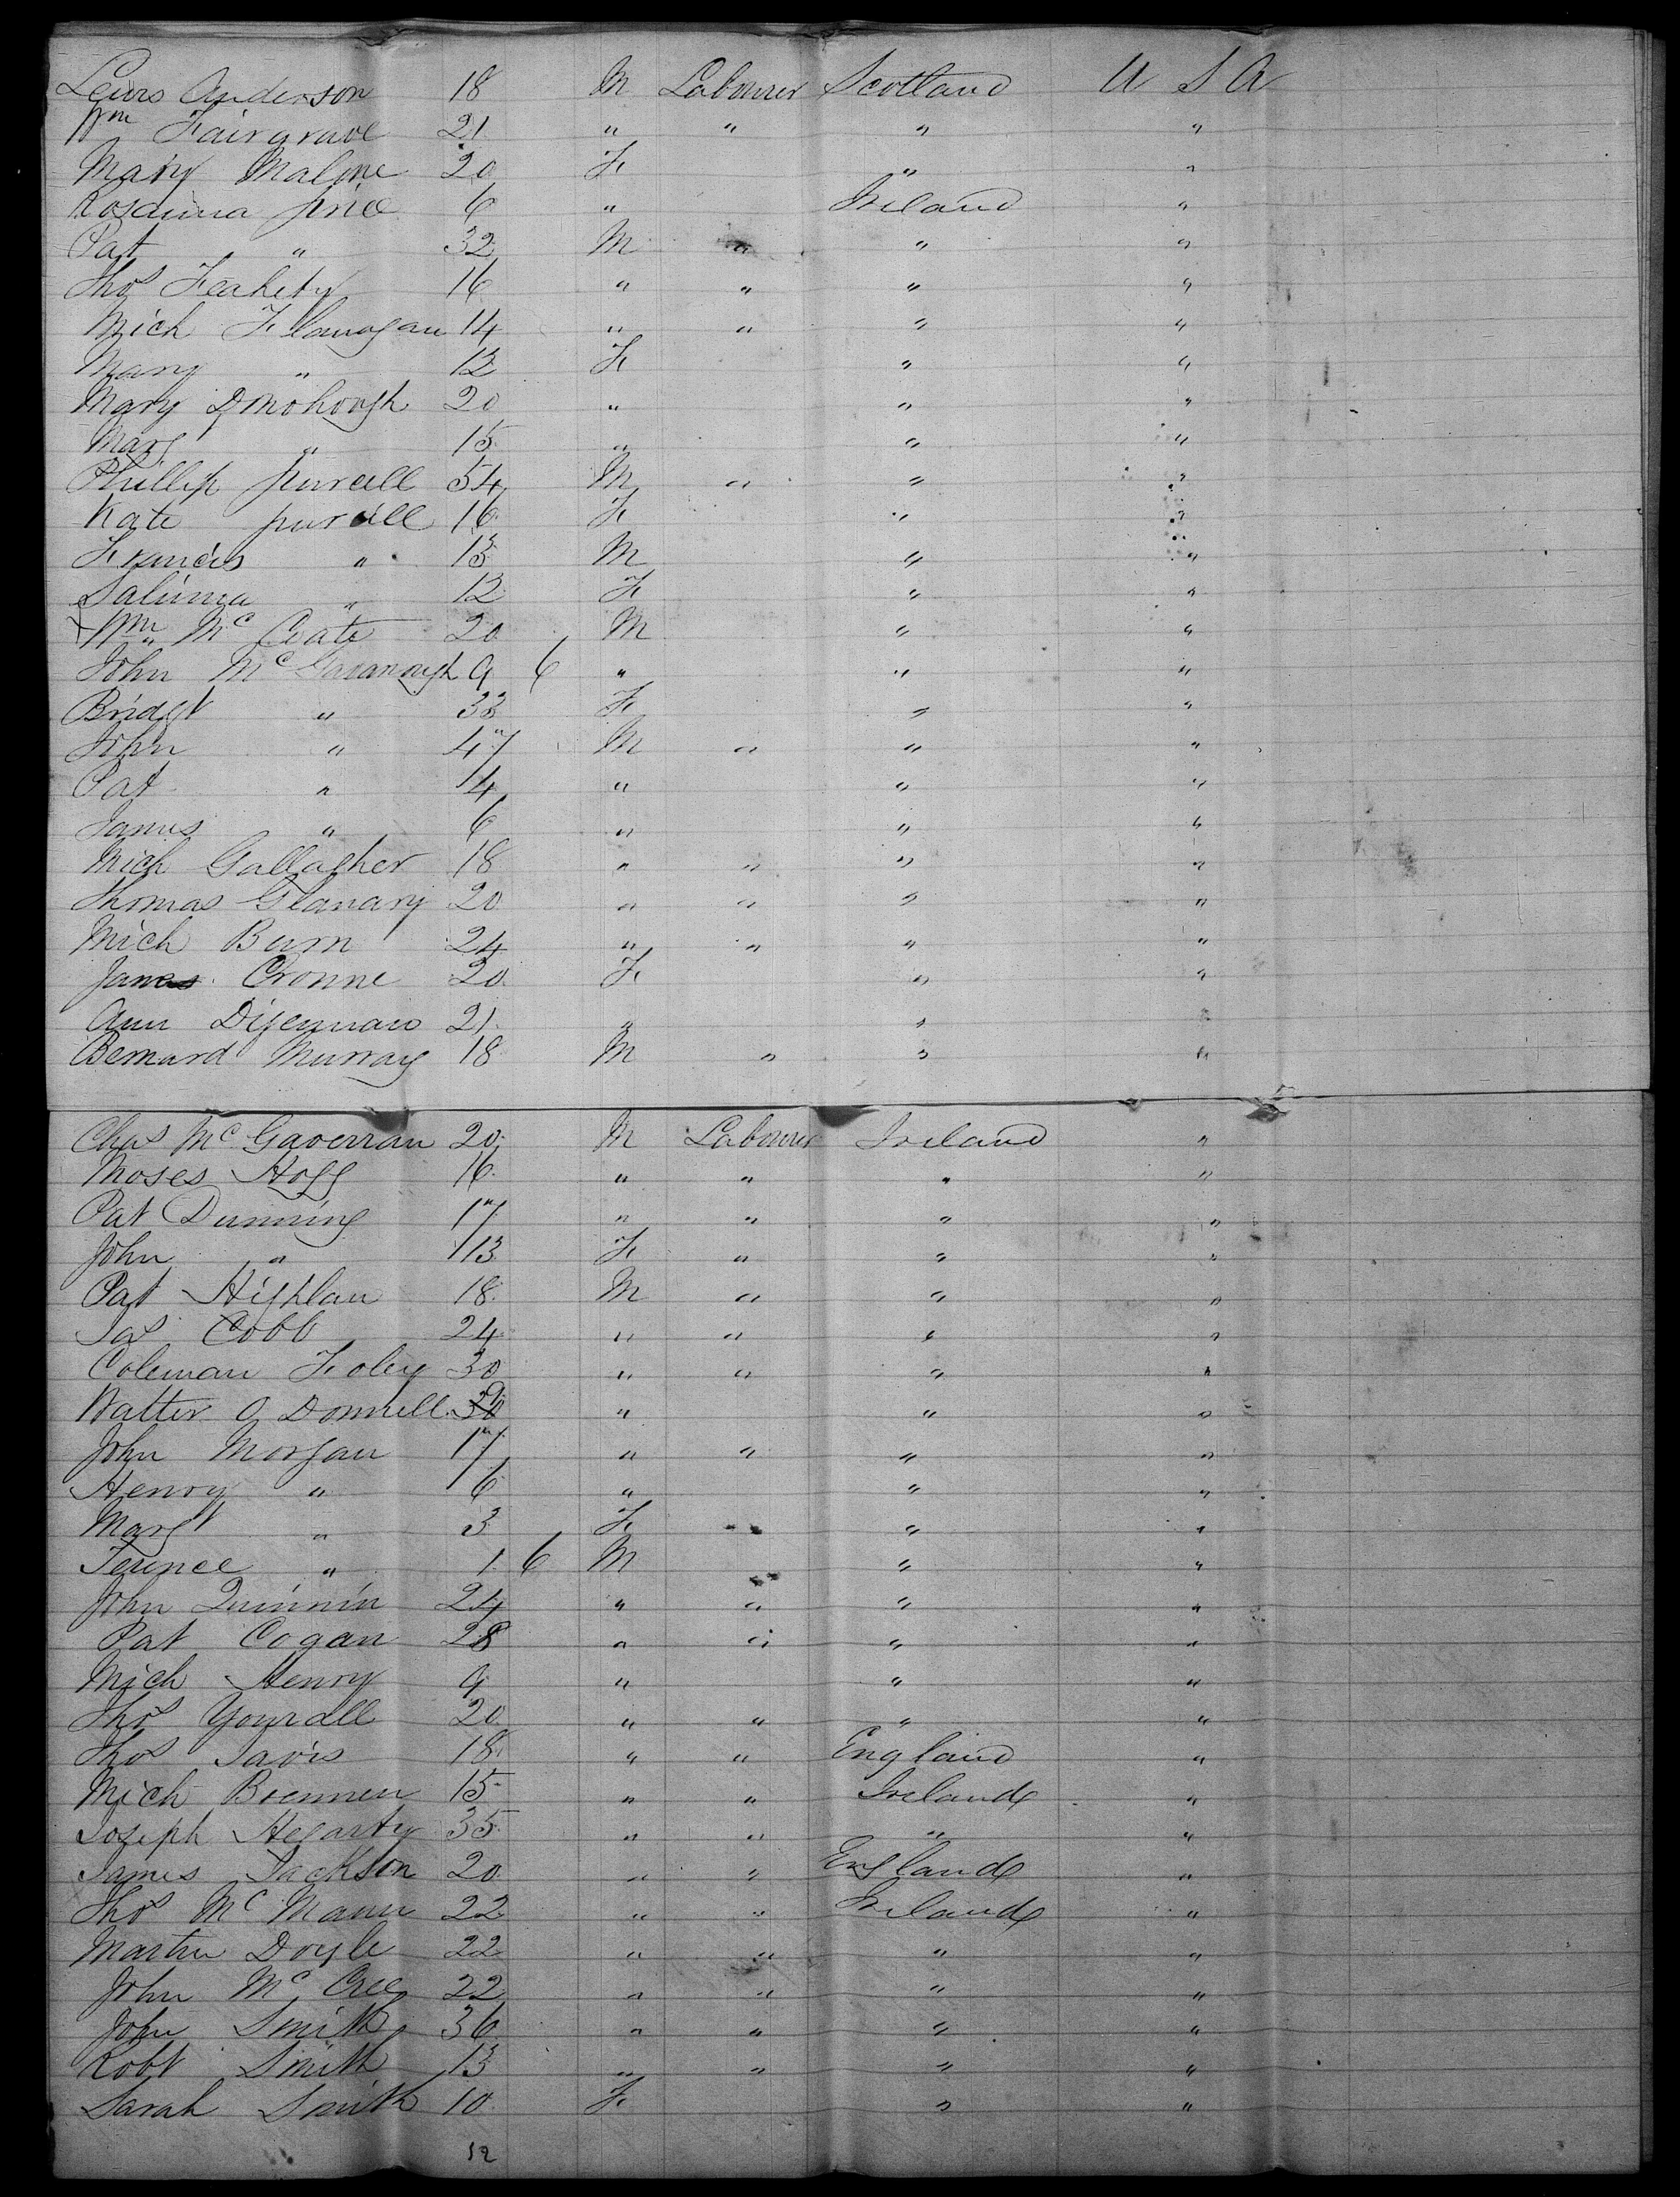 Lewis Anderson 18 M Labourer Scotland U S A
Wm Fairgrave 21 " " " "
Mary Malone 20 F " "
Rosanna Price 6 " Ireland "
Pat " 32 M " " "
Thos Feahety 16 " " " "
Mich Flannogan 14 " " " "
Mary " 12 F " "
Mary Donohough 20 " " "
Marg " 15 " " "
Phillip Purcell 54 M " " "
Kate Purcell 16 F " "
Francis " 13 M " "
Salinya " 12 F " "
Wm " Mc Cate 20 M " "
John Mc Gavanaugh 9 6 " " "
Bridgt " 33 F " "
John " 47 M " " "
Pat " 14 " " "
James " 6 " " "
Mich Gallagher 18 " " " "
Thomas Glanary 20 " " " "
Mich Burn 24 " " " "
Jane Cronne 20 F " "
Ann Digennan 21 " " "
Bernard Murray 18 M " " "
Chas Mc Gaverran 20 M Labourer Ireland "
Moses Hogg 16 " " " "
Pat Dunning 17 " " " "
John " 13 F " " "
Pat Highlan 18 M " " "
Jas Cobb 24 " " " "
Coleman Foley 30 " " " "
Walter O Donnell 9 " " "
John Morgan 17 " " " "
Henry " 6 " " "
Margt " 3 F " "
Terence " 1 6 M " "
John Quinnin 24 " " " "
Pat Cogan 28 " " " "
Mich Henry 9 " " "
Thos Yourell 20 " " " "
Thos Davis 18 " " England "
Mich Brennen 15 " " Ireland "
Joseph Hegarty 35 " " " "
James Jackson 20 " " England "
Thos Mc Mann 22 " " Ireland "
Martin Doyle 22 " " " "
John Mc Cree 22 " " " "
John Smith 36 " " " "
Robt Smith 13 " " " "
Sarah Smith 10 F " "
12